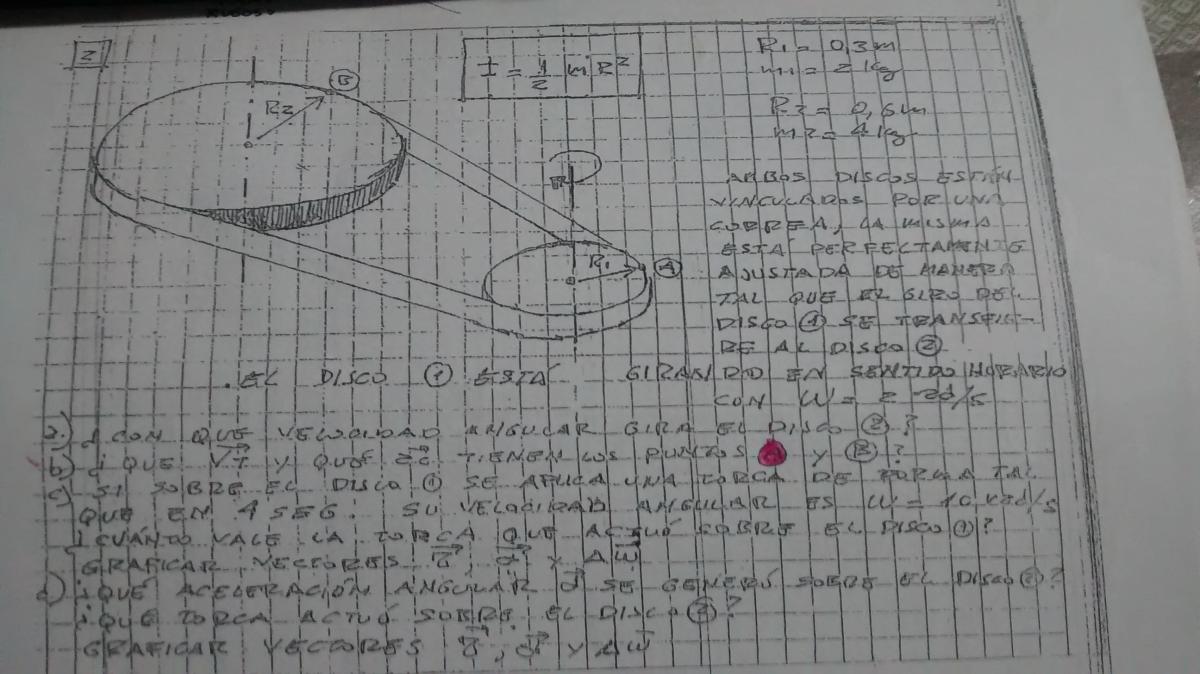 2
B
R2
I = 1/2 m R²
R1 = 0,3 m
m1 = 2 Kg
R2 = 0,6 m
m2 = 4 Kg
R1
A
AMBOS DISCOS ESTÁN
VINCULADOS POR UNA
CORREA, LA MISMA
ESTÁ PERFECTAMENTE
AJUSTADA DE MANERA
TAL QUE EL GIRO DEL
DISCO 1 SE TRANSFIE-
RE AL DISCO 2.
. EL DISCO 1 ESTÁ GIRANDO EN SENTIDO HORARIO
CON W = 2 rad/s
a) ¿CON QUE VELOCIDAD ANGULAR GIRA EL DISCO 2?
b) ¿QUE VT Y QUÉ ac TIENEN LOS PUNTOS Y B?
c) SI SOBRE EL DISCO 1 SE APLICA UNA TORCA DE FORMA TAL
QUE EN 4 SEG. SU VELOCIDAD ANGULAR ES W = 10 rad/s
¿CUÁNTO VALE LA TORCA QUE ACTUÓ SOBRE EL DISCO 1?
GRAFICAR VECTORES τ, α y Δω
d) ¿QUÉ ACELERACIÓN ANGULAR α SE GENERÓ SOBRE EL DISCO 2?
¿QUE TORCA ACTUÓ SOBRE EL DISCO 2?
GRAFICAR VECTORES τ, α y Δω